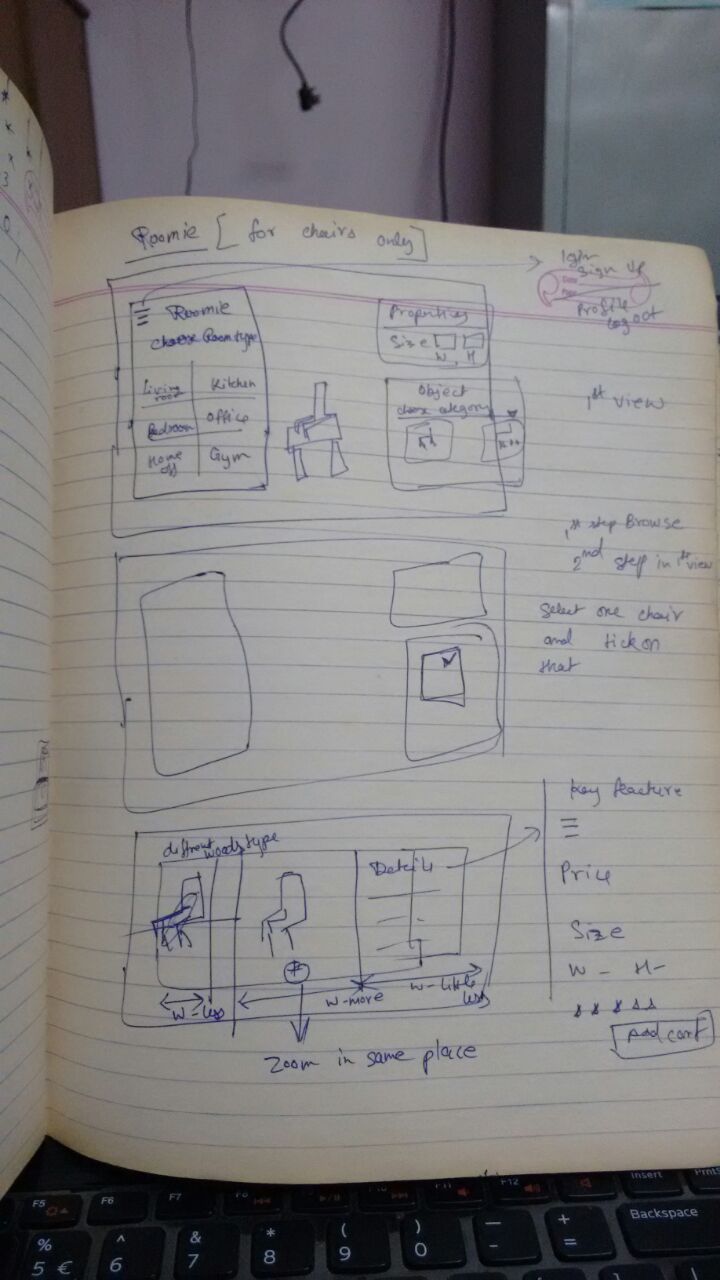 Roomie [for chairs only]
login
sign up
Profile
logout
Roomie
choose Room type
Living room
Kitchen
Bedroom
Office
Home off
Gym
Properties
Size
W
H
Object
choose category
1st view
1st step Browse
2nd step in 1st view
Select one chair
and tick on
that
different woods type
Details
W-less
W-more
W-little less
Zoom in same place
key feature
Price
Size
W - H-
Add cart
F5
F6
F7
F8
F9
F10
F11
F12
Insert
PrntS
%
5 €
^
6
&
7
*
8
(
9
)
0
_
-
+
=
Backspace